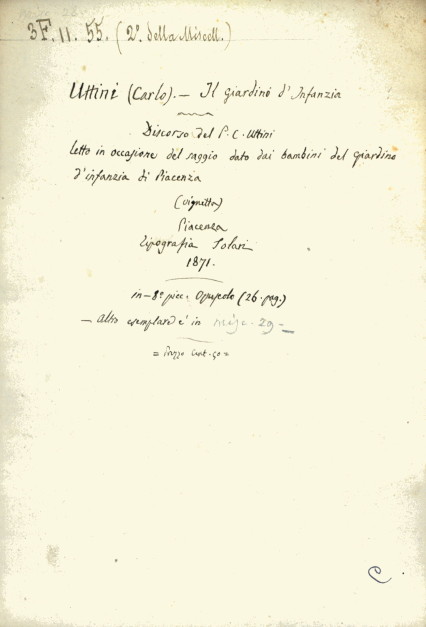 3F. II. 55. (2º. della Miscell.)
Uttini (Carlo). — Il giardino d'Infanzia
Discorso del P. C. Uttini
letto in occasione del saggio dato dai bambini del giardino
d'infanzia di Piacenza
(vignetta)
Piacenza
Tipografia Solari
1871.
in-8º picc. Opuscolo (26. pag.)
— Altro esemplare è in Misc. 29 —
= Prezzo Cent. 50 =
C